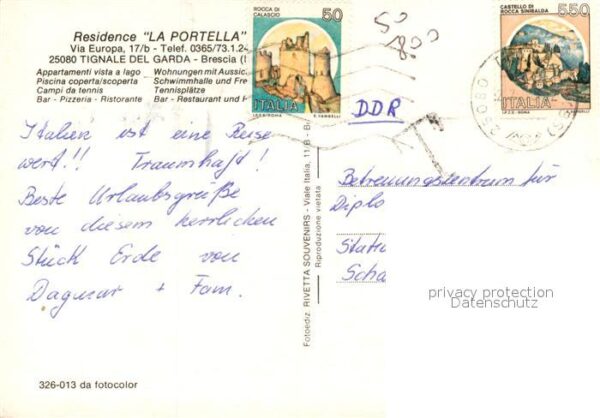 Residence "LA PORTELLA"
Via Europa, 17/b - Telef. 0365/73.1.2
25080 TIGNALE DEL GARDA - Brescia (
Appartamenti vista a lago Wohnungen mit Aussic
Piscina coperta/scoperta Schwimmhalle und Fre
Campi da tennis Tennisplätze
Bar - Pizzeria - Ristorante Bar - Restaurant und
ROCCA DI CALASCIO
50
ITALIA
I.P.Z.S. ROMA E. VANGELLI
50
800
CASTELLO DI ROCCA SINIBALDA
550
ITALIA
I.P.Z.S. - ROMA
25080
DDR
T
Italien ist eine Reise
wert!! Traumhaft!
Beste Urlaubsgrüße
von diesem herrlichen
Stück Erde von
Dagmar + Fam.
Fotoediz. RIVETTA SOUVENIRS - Viale Italia, 11/B - B
Riproduzione vietata
Betreuungszentrum für
Diplo
Stati
Scha
privacy protection
Datenschutz
326-013 da fotocolor